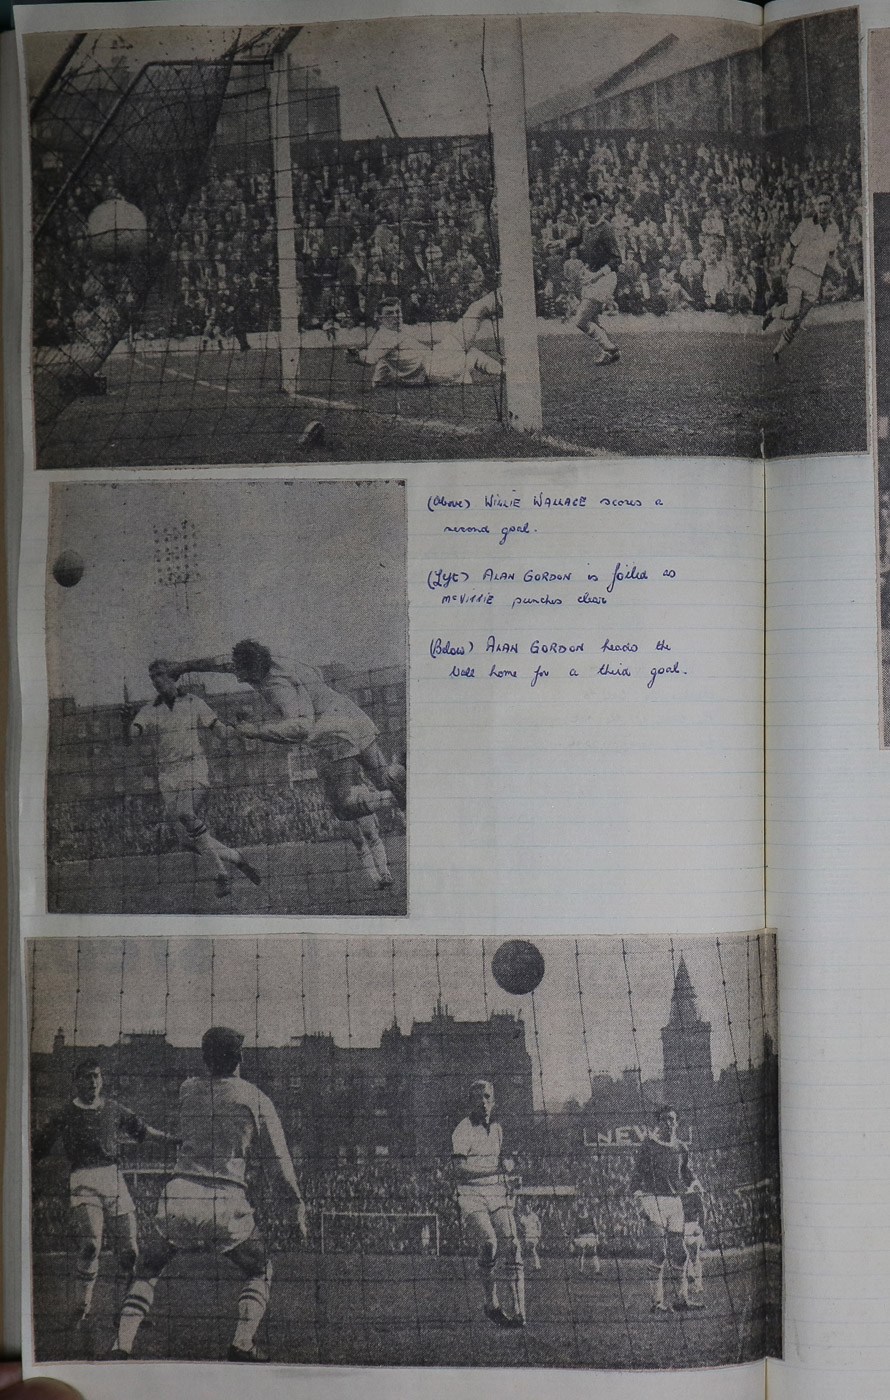 (Above) WILLIE WALLACE scores a
second goal.
(Left) ALAN GORDON is foiled as
McVITTIE punches clear
(Below) ALAN GORDON heads the
ball home for a third goal.
NEW